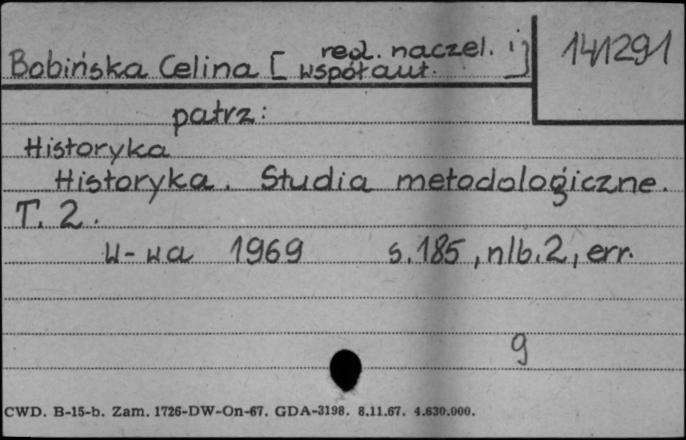 Bobińska Celina [ red. naczel. i
współaut. ]
141291
patrz:
Historyka
Historyka. Studia metodologiczne.
T. 2.
W-wa 1969 s. 185, nlb. 2, err.
9
CWD. B-15-b. Zam. 1726-DW-On-67. GDA-3198. 8.11.67. 4.630.000.